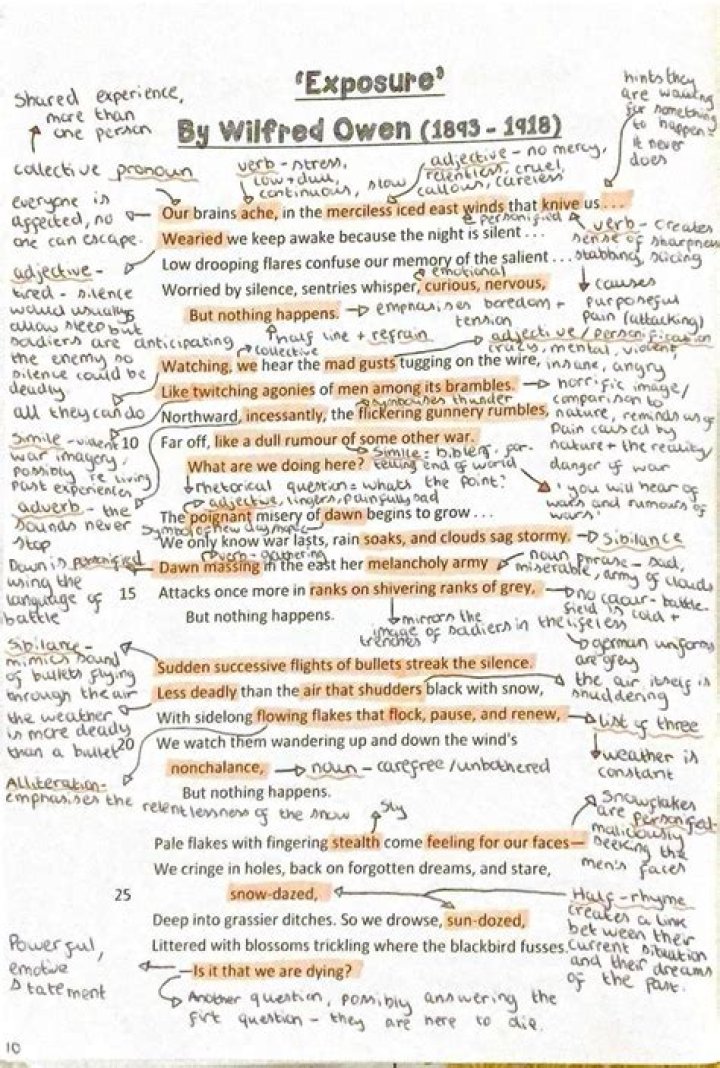 'Exposure'
By Wilfred Owen (1893 - 1918)
Shared experience,
more than
one person
collective pronoun
everyone is
affected, no
one can escape.
verb - stress,
low + dull,
continuous, slow
adjective - no mercy,
relentless, cruel
callous, careless
hints they
are waiting
for something
to happen
it never
does
Our brains ache, in the merciless iced east winds that knive us ...
personified
Wearied we keep awake because the night is silent ...
verb - creates
sense of sharpness
stabbing, slicing
Low drooping flares confuse our memory of the salient ...
causes
purposeful
pain (attacking)
emotional
Worried by silence, sentries whisper, curious, nervous,
But nothing happens.
emphasises boredom +
tension
half line + refrain
adjective -
tired - silence
would usually
allow sleep but
soldiers are anticipating
the enemy so
silence could be
deadly
5
collective
adjective / personification
crazy, mental, violent
insane, angry
Watching, we hear the mad gusts tugging on the wire,
Like twitching agonies of men among its brambles.
horrific image/
comparison to
nature, reminds us of
pain caused by
nature + the reality/
danger of war
all they can do
symbolises thunder
Northward, incessantly, the flickering gunnery rumbles,
Simile - violent
war imagery,
possibly re living
past experiences
10
Far off, like a dull rumour of some other war.
Simile = bible ref. for-
telling end of world
'you will hear of
wars and rumours of
wars'
What are we doing here?
rhetorical question = whats the point?
adverb - the
sounds never
stop
adjective, lingers, painfully sad
The poignant misery of dawn begins to grow ...
symbol of new day/hope
We only know war lasts, rain soaks, and clouds sag stormy.
Sibilance
verb - gathering
Dawn massing in the east her melancholy army
noun phrase - sad,
miserable, army of clouds
Dawn is personified
using the
language of
battle
15
Attacks once more in ranks on shivering ranks of grey,
no colour - battle-
field is cold +
lifeless
But nothing happens.
mirrors the
image of soldiers in the
trenches
german uniforms
are grey
Sibilance -
mimics sound
of bullets flying
through the air
Sudden successive flights of bullets streak the silence.
Less deadly than the air that shudders black with snow,
the air itself is
shuddering
the weather
is more deadly
than a bullet
With sidelong flowing flakes that flock, pause, and renew,
list of three
weather is
constant
20
We watch them wandering up and down the wind's
nonchalance,
noun - carefree / unbothered
But nothing happens.
Alliteration -
emphasises the relentlessness of the snow
sly
Snowflakes
are personified -
maliciously
seeking the
men's faces
Pale flakes with fingering stealth come feeling for our faces—
We cringe in holes, back on forgotten dreams, and stare,
25
snow-dazed,
Half-rhyme
creates a link
between their
current situation
and their dreams
of the past.
Deep into grassier ditches. So we drowse, sun-dozed,
Littered with blossoms trickling where the blackbird fusses.
Powerful,
emotive
statement
—Is it that we are dying?
Another question, possibly answering the
firt question - they are here to die.
10